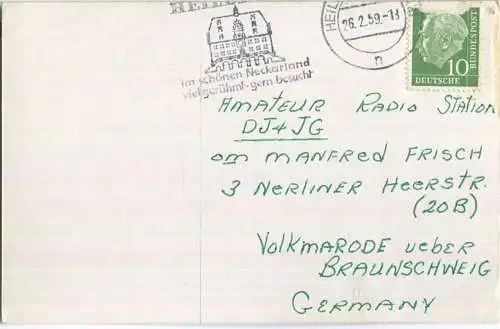 HEIL
26.2.59.-18
n
im schönen Neckarland
vielgerühmt-gern besucht
DEUTSCHE
BUNDESPOST
10
AMATEUR RADIO STATION
DJ4JG
OM MANFRED FRISCH
3 NERLINER HEERSTR.
(20B)
VOLKMARODE UEBER
BRAUNSCHWEIG
GERMANY